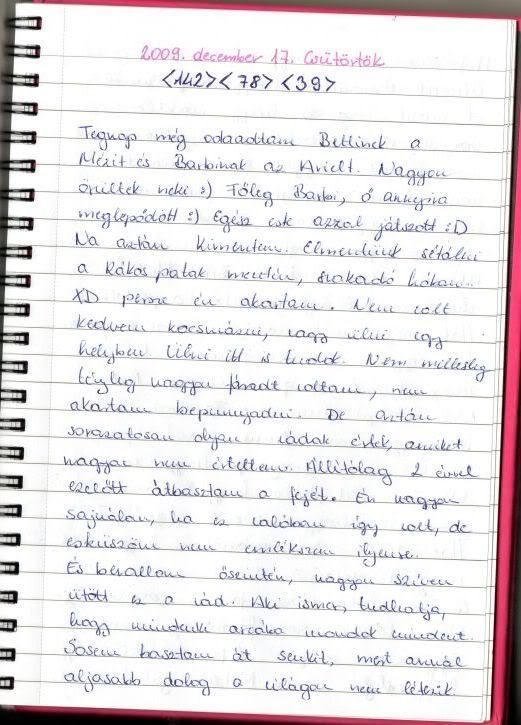 2009. december 17. Csütörtök
<142> <78> <39>
Tegnap még odaadtam Bettinek a
Mézit és Barbinak az Arielt. Nagyon
örültek neki :) Főleg Barbi, ő annyira
meglepődött :) Egész este azzal játszott :D
Na aztán kimentem. Elmentünk sétálni
a Rákos patak mentén, szakadó hóban..
XD persze én akartam. Nem volt
kedvem kocsmázni, vagy ülni egy
helyben. Ülni itt is tudok. Nem mellesleg
tényleg nagyon fáradt voltam, nem
akartam bepunnyadni. De aztán
sorozatosan olyan vádak értek, amiket
nagyon nem értettem. Állítólag 2 évvel
ezelőtt átbasztam a fejét. Én nagyon
sajnálom, ha ez valóban így volt, de
esküszöm nem emlékszem ilyenre.
És bevallom őszintén, nagyon szíven
ütött ez a vád. Aki ismer, tudhatja,
hogy mindenki arcába mondok mindent.
Sosem basztam át senkit, mert annál
aljasabb dolog a világon nem létezik